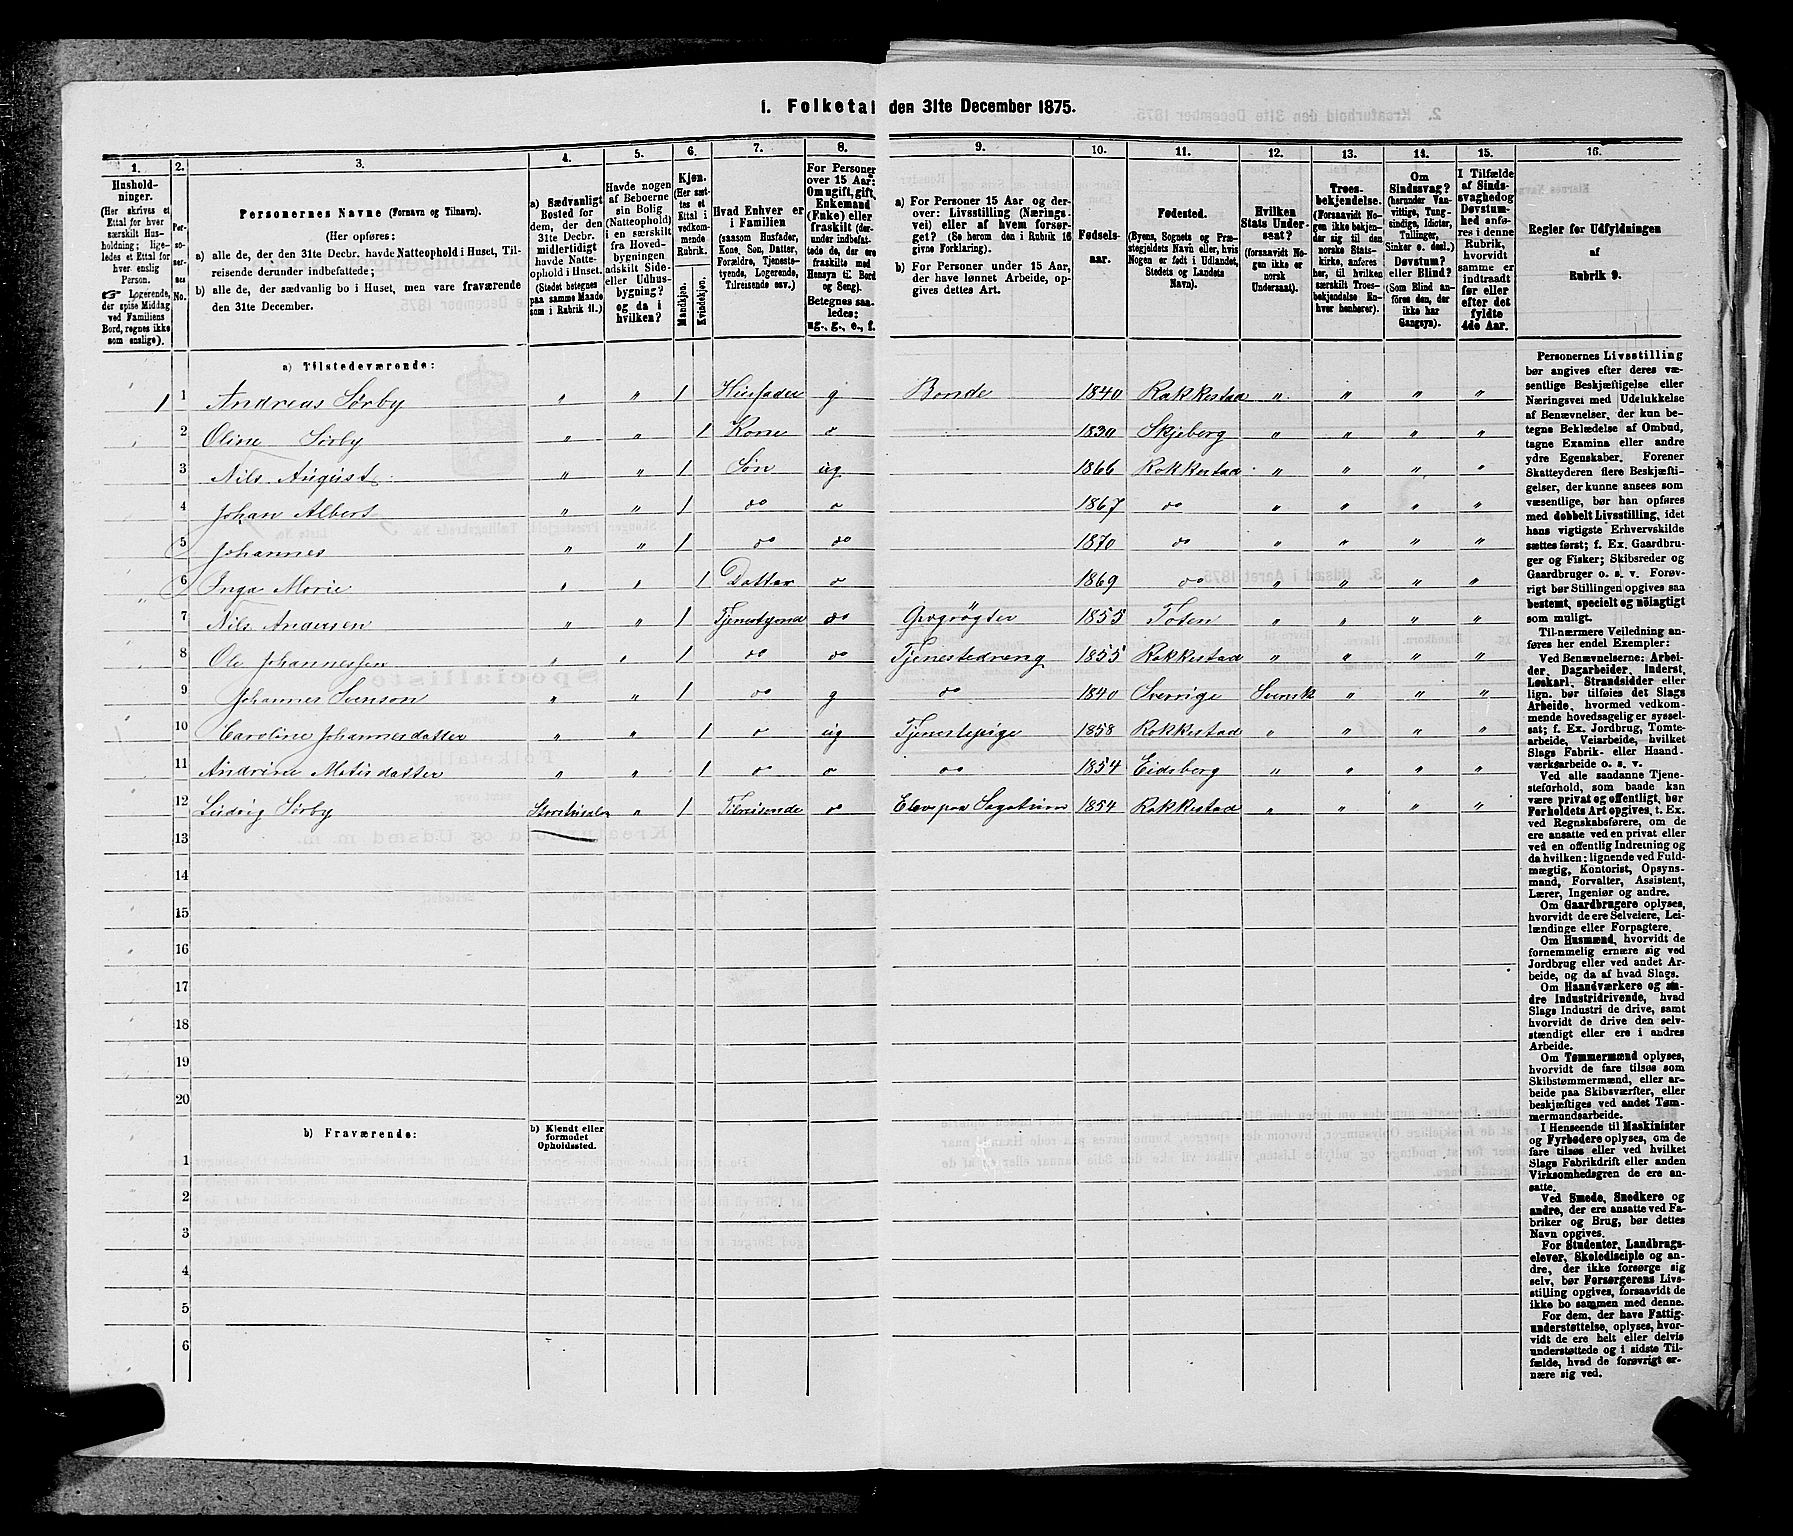 1. Folketal den 31te December 1875.
1. 2. 3. 4. 5. 6. 7. 8. 9. 10. 11. 12. 13. 14. 15. 16.
Hushold-
ninger.
(Her skrives et
Ettal for hver
særskilt Hus-
holdning; lige-
ledes et Ettal for
hver enslig
Person.
☞ Logerende,
der spise Middag
ved Familiens
Bord, regnes ikke
som enslige).
Per-
so-
ner-
nes
No.
Personernes Navne (Fornavn og Tilnavn).
(Her opføres:
a) alle de, der den 31te Decbr. havde Natteophold i Huset, Til-
reisende derunder indbefattede;
b) alle de, der sædvanlig bo i Huset, men vare fraværende
den 31te December.
a) Sædvanligt
Bosted for
dem, der den
31te Decbr.
midlertidigt
havde Natte-
ophold i Huset.
(Stedet betegnes
paa samme Maade
som i Rubrik 11.)
Havde nogen
af Beboerne
sin Bolig
(Natteophold)
i en særskilt
fra Hoved-
bygningen
adskilt Side-
eller Udhus-
bygning?
og da i
hvilken?
Kjøn.
(Her sæt-
tes et
Ettal i
vedkom-
mende
Rubrik.
Mandkjøn.
Kvindekjøn.
Hvad Enhver er
i Familien
(saasom Husfader,
Kone, Søn, Datter,
Forældre, Tjeneste-
tyende, Logerende,
Tilreisende osv.)
For Personer
over 15 Aar:
Om ugift, gift,
Enkemand
(Enke) eller
fraskilt (der-
under indbefat-
tede de, der ere
fraskilte med
Hensyn til Bord
og Seng).
Betegnes saa-
ledes:
ug., g., e., f.
a) For Personer 15 Aar og der-
over: Livsstilling (Nærings-
vei) eller af hvem forsør-
get? (Se herom den i Rubrik 16
givne Forklaring).
b) For Personer under 15 Aar,
der have lønnet Arbeide, op-
gives dettes Art.
Fødsels-
aar.
Fødested.
(Byens, Sognets og Præ-
stegjeldets Navn eller, hvis
Nogen er født i Udlandet,
Stedets og Landets
Navn).
Hvilken
Stats Under-
saat?
(forsaavidt No-
gen ikke er
norsk
Undersaat).
Troes-
bekjendelse.
(Forsaavidt No-
gen ikke bekjen-
der sig til den
norske Stats-
kirke, anføres
her, til hvilken
særskilt Troes-
bekjendelse En-
hver henhører).
Om
Sindssvag?
(herunder Van-
vittige, Tung-
sindige, Idioter,
Tullinger,
Sinker o. desl.)
Døvstum?
eller Blind?
(Som Blind an-
føres den, der
ikke har
Gangsyn).
I Tilfælde
af Sinds-
svaghed og
Døvstum-
hed anfø-
res i denne
Rubrik,
hvorvidt
samme er
indtraadt
før eller
efter det
fyldte
4de Aar.
Regler for Udfyldningen
af
Rubrik 9.
a) Tilstedeværende:
1 1 Andreas Sørby " " 1 Husfader g Bonde 1840 Rakkestad " " " "
2 Oline Sørby " " 1 Kone o 1830 Skjeberg " " " "
3 Nils August " " 1 Søn ug 1866 Rakkestad " " "
4 Johan Albert " " 1 do o 1867 do " " " "
5 Johannes " " 1 do do 1870 do " " " "
6 Inga Marie " " 1 Datter o 1869 do " " " "
7 Nils Andersen " " 1 Tjenestyende do 1855 Toten " " " "
8 Ole Johannessen " " 1 do do Tjenestedreng 1855 Rakkestad " " " "
9 Johannes Svenson " " 1 do g do 1840 Sverrige Svensk " " "
10 Caroline Johannesdatter " " 1 o ug Tjenestepige 1858 Rakkestad " " " "
11 Andrine Matisdatter " " 1 o o do 1854 Eidsberg " " " "
12 Ludvig Sørby " 1 Tilreisende o Elev paa 1854 Rakkestad " " " "
13
14
15
16
17
18
19
20
b) Fraværende:
b) Kjendt eller
formodet
Opholdssted.
1
2
3
4
5
6
Personernes Livsstilling
bør angives efter deres væ-
sentlige Beskjæftigelse eller
Næringsvei med Udelukkelse
af Benævnelser, der kun be-
tegne Beklædelse af Ombud,
tagne Examina eller andre
ydre Egenskaber. Forener
Skatteyderen flere Beskjæfti-
gelser, der kunne ansees som
væsentlige, bør han opføres
med dobbelt Livsstilling, idet
hans vigtigste Erhvervskilde
sættes først; f. Ex. Gaardbru-
ger og Fisker; Skibsreder og
Gaardbruger o. s. v. Forøv-
rigt bør Stillingen opgives saa
bestemt, specielt og nøiagtigt
som muligt.
Til nærmere Veiledning an-
føres her endel Exempler:
Ved Benævnelserne: Arbei-
der, Dagarbeider, Inderst,
Løskarl, Strandsidder eller
lign. bør tilføies det Slags
Arbeide, hvormed vedkom-
mende hovedsagelig er syssel-
sat; f. Ex. Jordbrug, Tomte-
arbeide, Veiarbeide, hvilket
Slags Fabrik- eller Haand-
værksarbeide o. s. v.
Ved alle saadanne Tjene-
steforhold, som baade kan
være privat og offentligt, bør
Forholdets Art opgives, t. Ex.
ved Regnskabsførere, om de
ere ansatte ved en privat eller
ved en offentlig Indretning og
da hvilken; lignende ved Fuld-
mægtig, Kontorist, Opsyns-
mand, Forvalter, Assistent,
Lærer, Ingeniør og andre.
Om Gaardbrugere oplyses,
hvorvidt de ere Selveiere, Lei-
lændinge eller Forpagtere.
Om Husmænd, hvorvidt de
fornemmelig ernære sig ved
Jordbrug eller ved andet Ar-
beide, og da af hvad Slags.
Om Haandværkere og an-
dre Industridrivende, hvad
Slags Industri de drive, samt
hvorvidt de drive den selv-
stændigt eller ere i andres
Arbeide.
Om Tømmermænd oplyses,
hvorvidt de fare tilsøs som
Skibstømmermænd, eller ar-
beide paa Skibsværfter, eller
beskjæftiges ved andet Tøm-
mermandsarbeide.
I Henseende til Maskinister
og Fyrbødere oplyses, om de
fare tilsøs eller ved hvilket
Slags Fabrikdrift eller anden
Virksomhedsgren de ere an-
satte.
Ved Smede, Snedkere og
andre, der ere ansatte ved Fa-
briker og Brug, bør dettes
Navn opgives.
For Studenter, Landbrugs-
elever, Skoledisciple og an-
dre, der ikke forsørge sig
selv, bør Forsørgerens Livs-
stilling opgives, forsaavidt de
ikke bo sammen med denne.
For dem, der have Fattig-
understøttelse, oplyses, hvor-
vidt de ere helt eller delvis
understøttede og i sidste Til-
fælde, hvad de forøvrigt er-
nære sig ved.